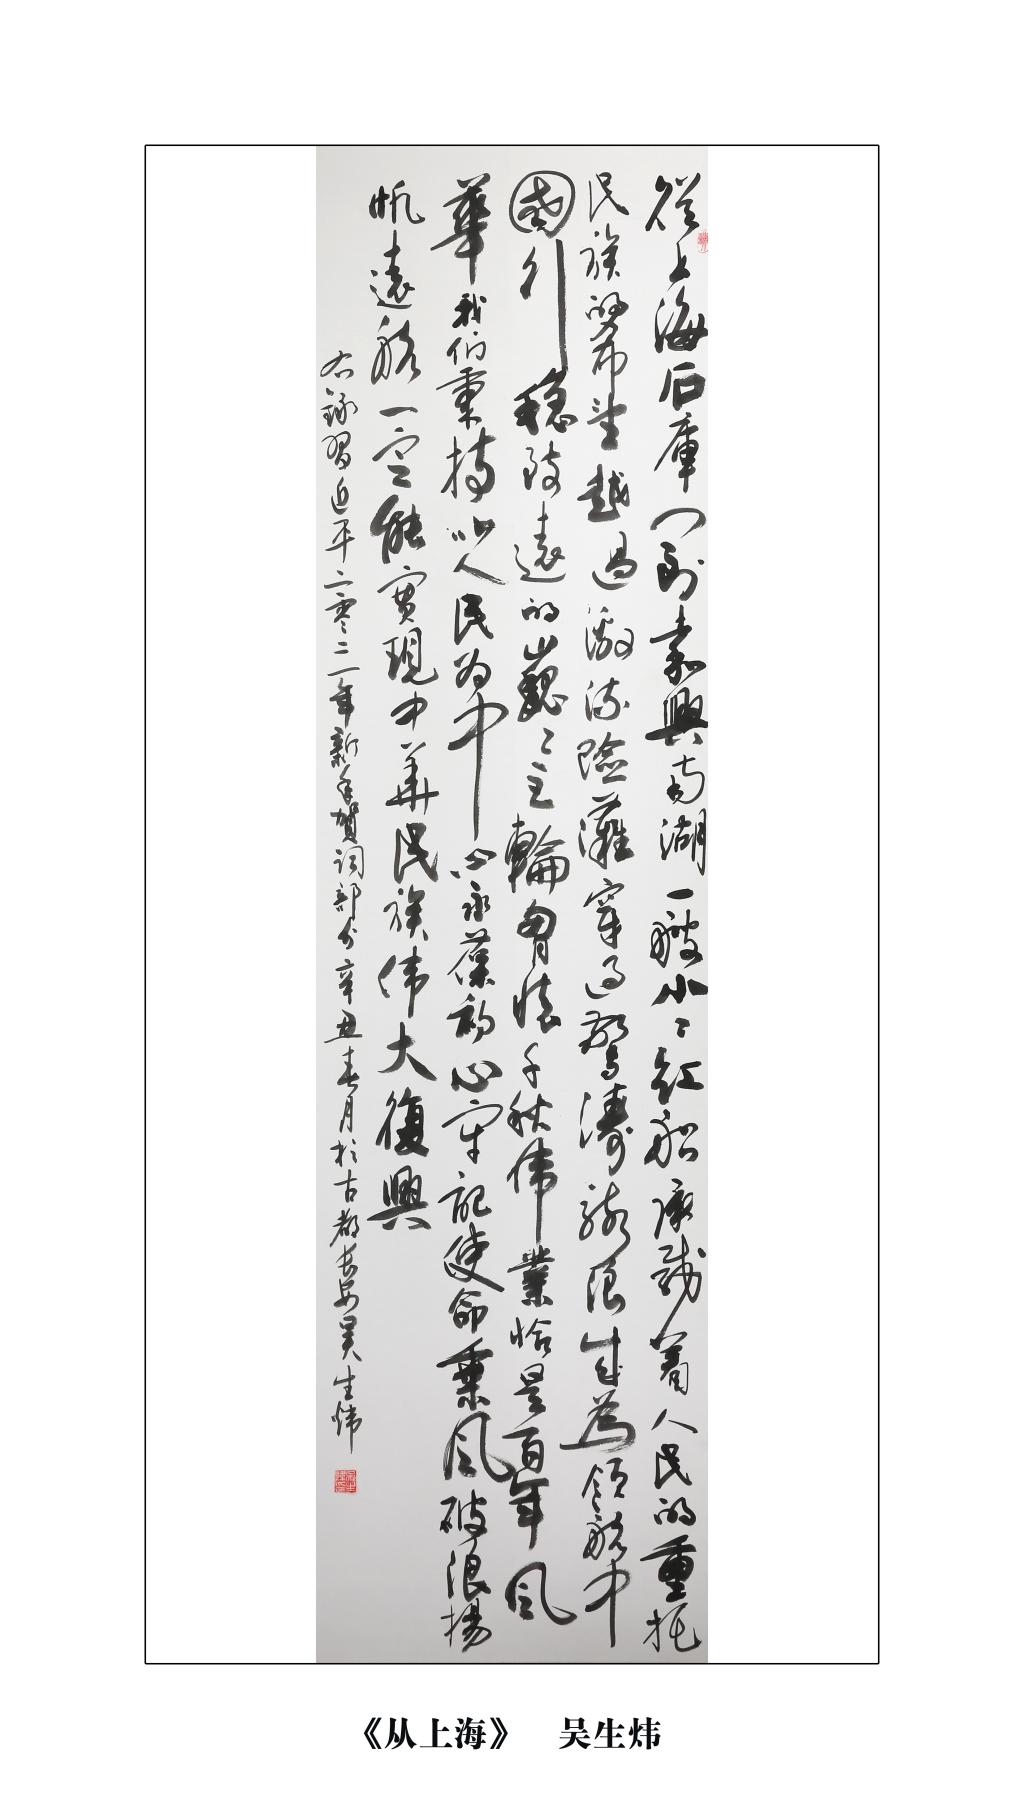 從上海石庫门到嘉興南湖一艘小〻红船承载着人民的重托
民族的希望越过激流险灘穿过驚濤骇浪成為领航中
國行穩致遠的巍〻巨輪胸懷千秋偉業恰是百年风
華我们秉持以人民为中心永葆初心牢記使命乘风破浪扬
帆遠航一定能實現中华民族伟大復興
右錄習近平二零二一年新年賀词部分辛丑春月於古都长安吴生炜
《从上海》 吴生炜